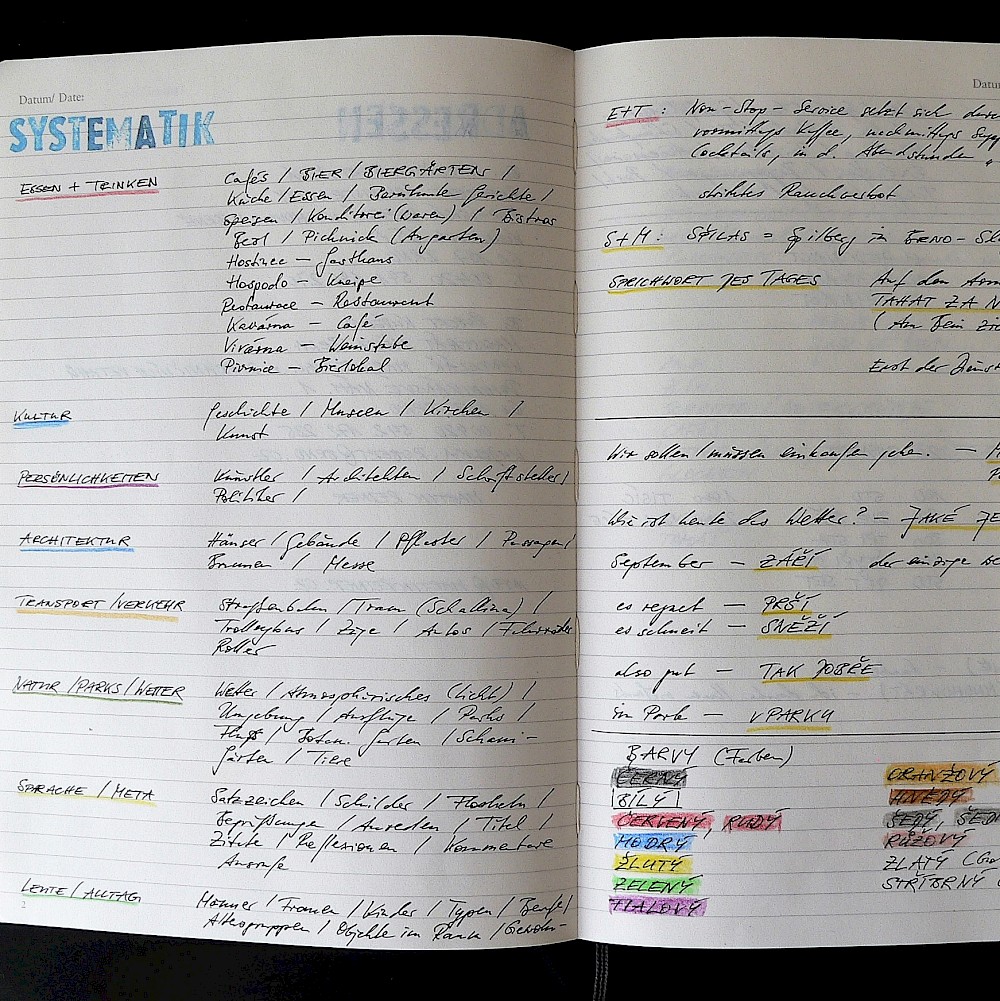 Datum/ Date:
SYSTEMATIK
ESSEN + TRINKEN
Cafés / BIER / BIERGÄRTEN /
Küche / Essen / Berühmte Gerichte /
Speisen / Konditorei (waren) / Bistros
Picknick (Augarten)
Hostinec – Gasthaus
Hospodo – Kneipe
Restaurace – Restaurant
Kavárna – Café
Vinárna – Weinstube
Pivnice – Bierlokal
KULTUR
Geschichte / Museen / Kirchen /
Kunst
PERSÖNLICHKEITEN
Künstler / Architekten / Schriftsteller /
Politiker /
ARCHITEKTUR
Häuser / Gebäude / Pflaster / Passagen /
Brunnen / Messe
TRANSPORT / VERKEHR
Straßenbahn / Tram (Schallina) /
Trolleybus / Züge / Autos / Fahrräder
Roller
NATUR / PARKS / WETTER
Wetter / Atmosphärisches (Licht) /
Umgebung / Ausflüge / Parks /
Fluß / Botan. Garten / Schani-
gärten / Tiere
SPRACHE / META
Satzzeichen / Schilder / Floskeln /
Begrüßungen / Anreden / Titel /
Zitate / Reflexionen / Kommentare
Ausrufe
LEUTE / ALLTAG
Männer / Frauen / Kinder / Typen / Berufe /
Altersgruppen / Objekte im Raum / Gewohn-
2
Datum
E+T : Non-Stop-Service setzt sich
vormittags Kaffee, nachmittags
Cocktails, in d. Abendstunden
striktes Rauchverbot
S+M : ŠPILAS = Spilberg in BRNO –
SPRICHWORT DES TAGES
Auf den Arm
TAHAT ZA N
(Am Bein
Ernst der
Wir sollen / müssen einkaufen gehen. –
Wie ist heute das Wetter? – JAKÉ JE
September – ZÁŘÍ der einzige
es regnet – PRŠÍ
es schneit – SNĚŽÍ
also gut – TAK DOBŘE
im Park – V PARKU
BARVY (Farben)
ČERNÝ
BÍLÝ
ČERVENÝ, RUDÝ
MODRÝ
ŽLUTÝ
ZELENÝ
FIALOVÝ
ORANŽOVÝ
HNĚDÝ
ŠEDÝ,
RŮŽOVÝ
ZLATÝ
STŘÍBRNÝ